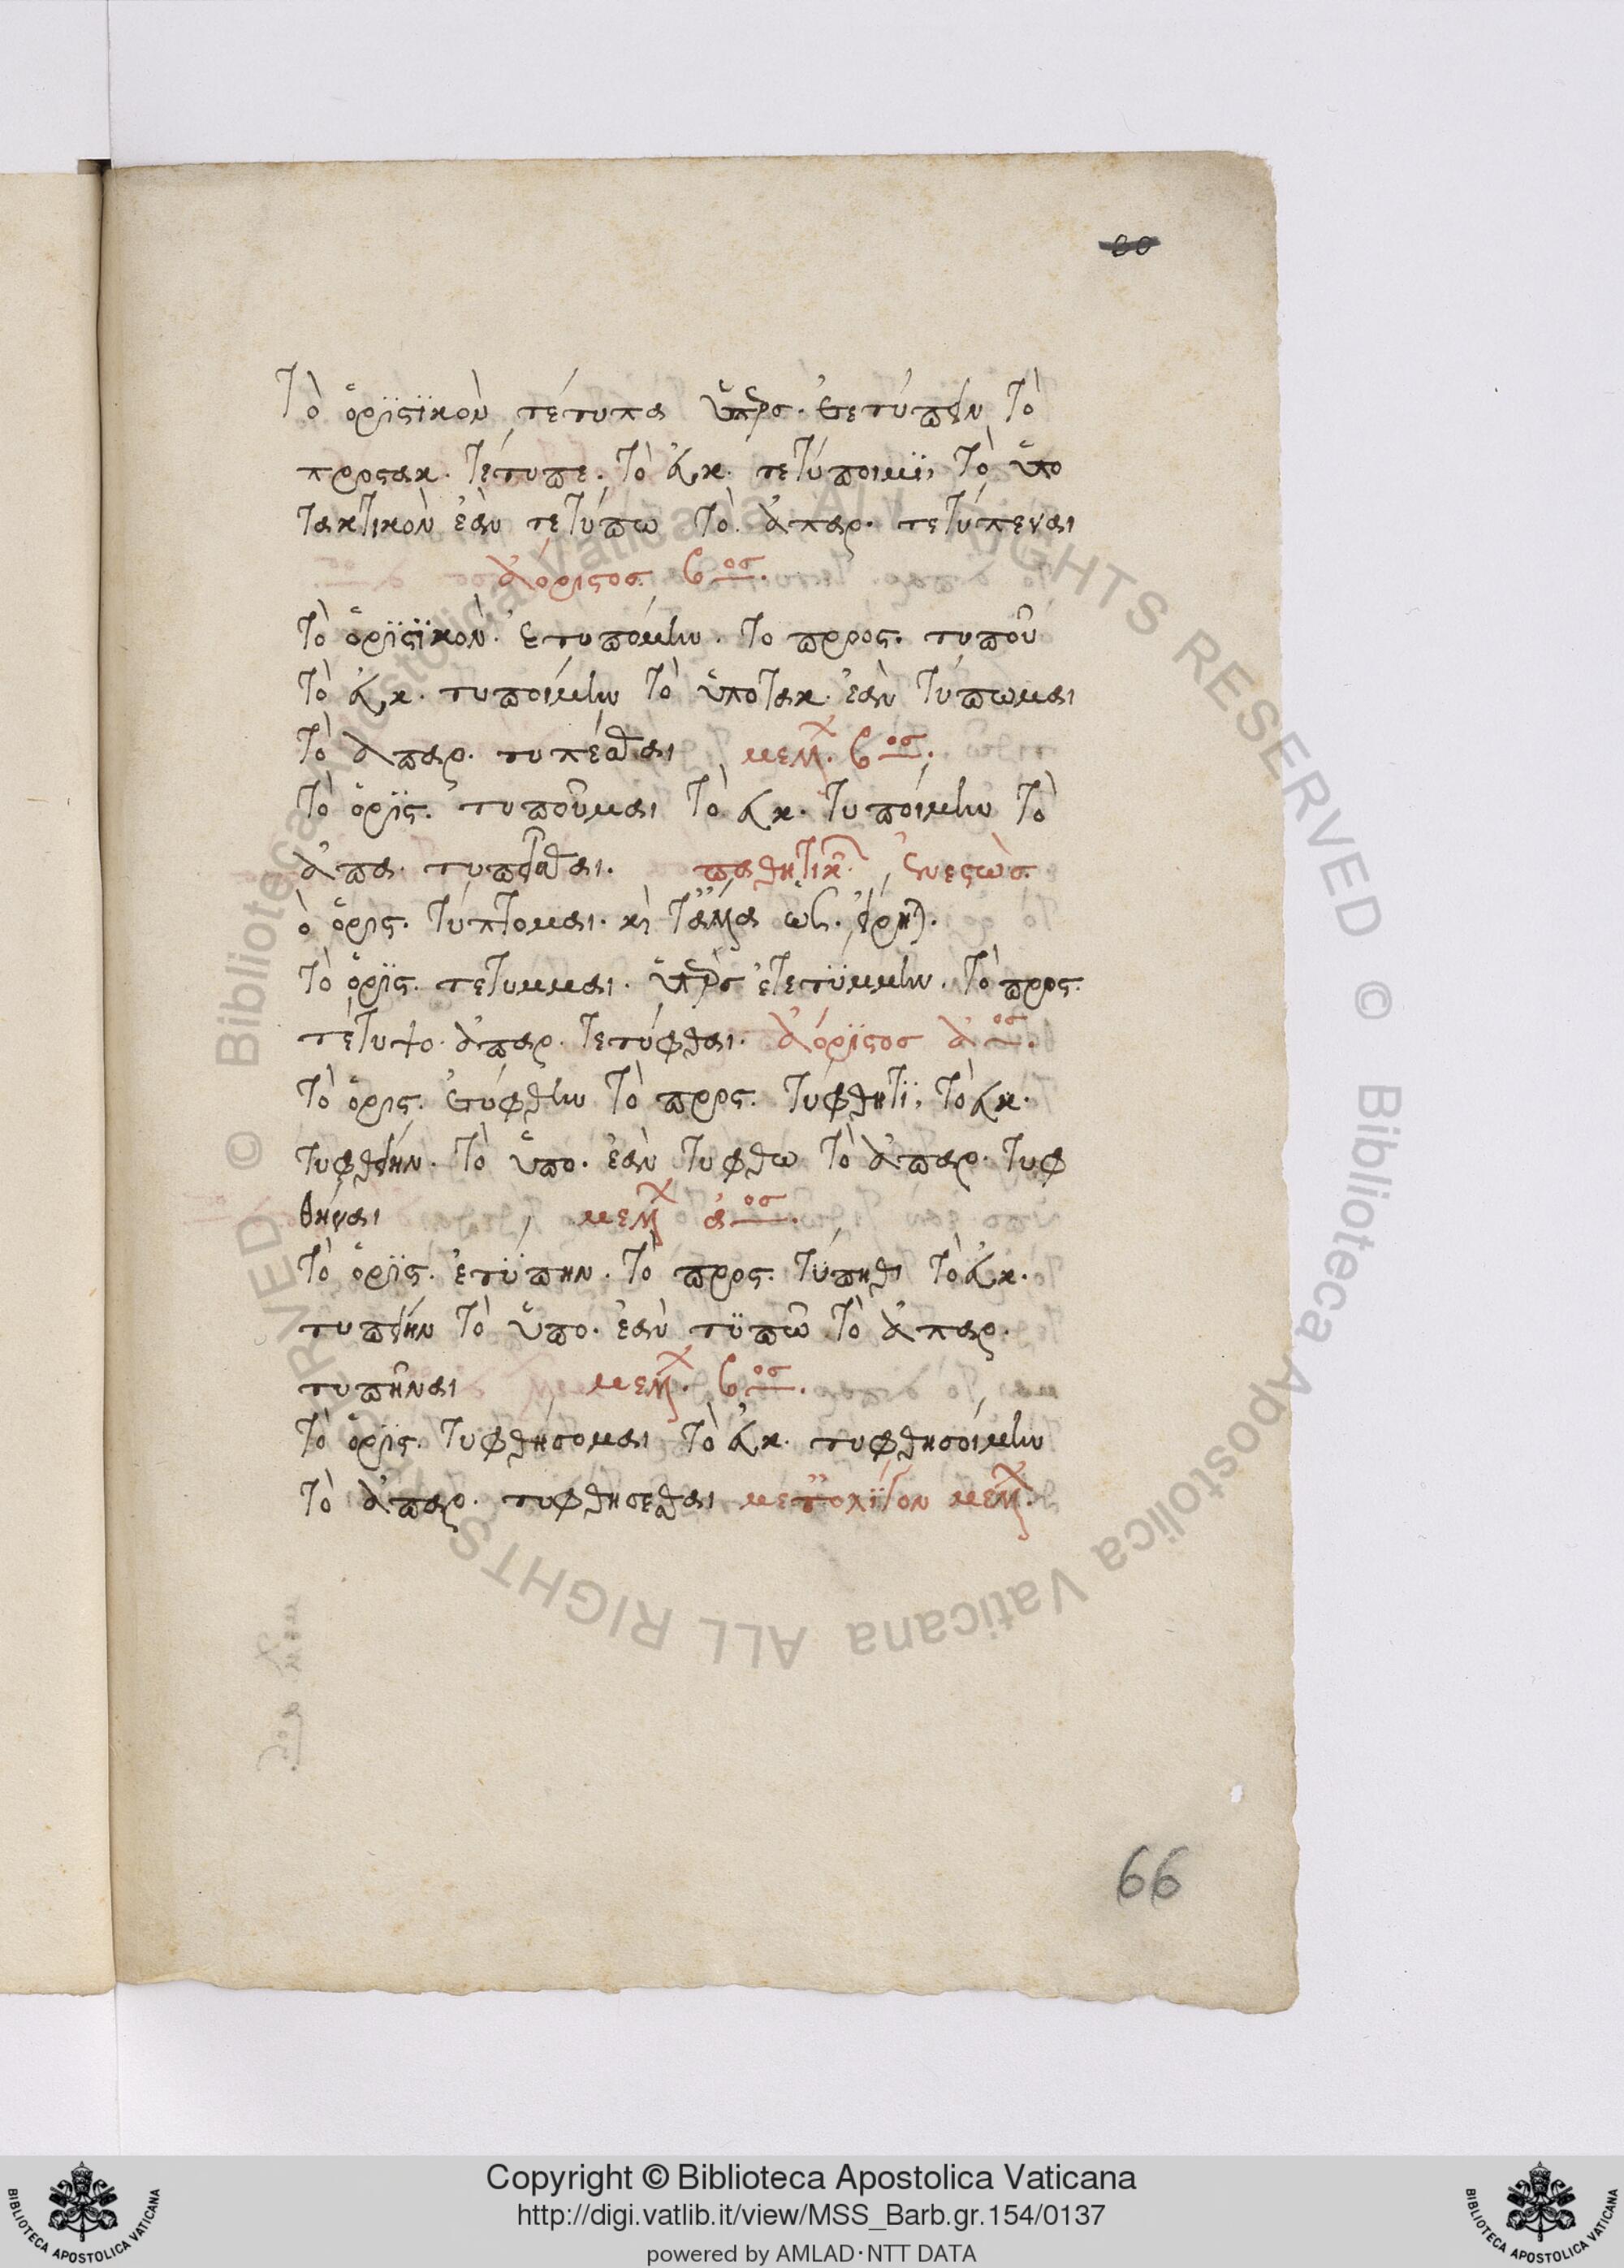 60
Τὸ ὁρϊςϊκὸν τέτυπα ὑπρσ. ἐτετύπειν Τὸ
προςακ. τέτυπε. Τὸ εὐκ. τετύποιμϊ, Τὸ ὑπο
τακτικὸν ἐὰν τετύπω Τὸ ἀπαρ. τετύπεναι
ἀόριςος βος.
Τὸ ὁρϊςϊκὸν. ἐτυπόμην. Το προς. τυποῦ
Τὸ εὐκ. τυποίμην Τὸ ὑποτακ. ἐὰν τύπωμαι
Τὸ ἀπαρ. τυπέσθαι μελλ. βος.
Τὸ ὁρϊς. τυποῦμαι Τὸ εὐκ. τυποίμην Τὸ
ἀπα. τυπεῖσθαι. παθητικ. ἐνεςὼσ
ὁ ὁρις. τύπτομαι. κὶ τἄλλα ὡς. εἴρηται.
Τὸ ὁρϊς. τετυμμαι. ὑπρσ ἐτετύμμην. Τὸ προς.
τέτυψο. ἀπαρ. τετύφθαι. ἀόρϊςοσ αος.
Τὸ ὁρις. ἐτύφθην Τὸ προς. τύφθητϊ, Τὸ εὐκ.
τυφθείην. Τὸ ὑπο. ἐὰν τυφθω Τὸ ἀπαρ. τυφ
θήναι μελλ αος.
Τὸ ὁρϊς. ἐτύπην. Τὸ προς. τύπηθι Τὸ εὐκ.
τυπείην Τὸ ὑπο. ἐὰν τϋπῶ Τὸ ἀπαρ.
τυπῆναι μελλ. βος.
Τὸ ὁρϊς. τυφθήσομαι Τὸ εὐκ. τυφθησοίμην
Τὸ ἀπαρ. τυφθησεσθαι μετ᾽ὀλίγον μελλ.
66
© Biblioteca Apostolica Vaticana ALL RIGHTS RESERVED © Biblioteca Apostolica Vaticana ALL RIGHTS RESERVED
Copyright © Biblioteca Apostolica Vaticana
http://digi.vatlib.it/view/MSS_Barb.gr.154/0137
powered by AMLAD·NTT DATA
BIBLIOTECA APOSTOLICA VATICANA
BIBLIOTECA APOSTOLICA VATICANA